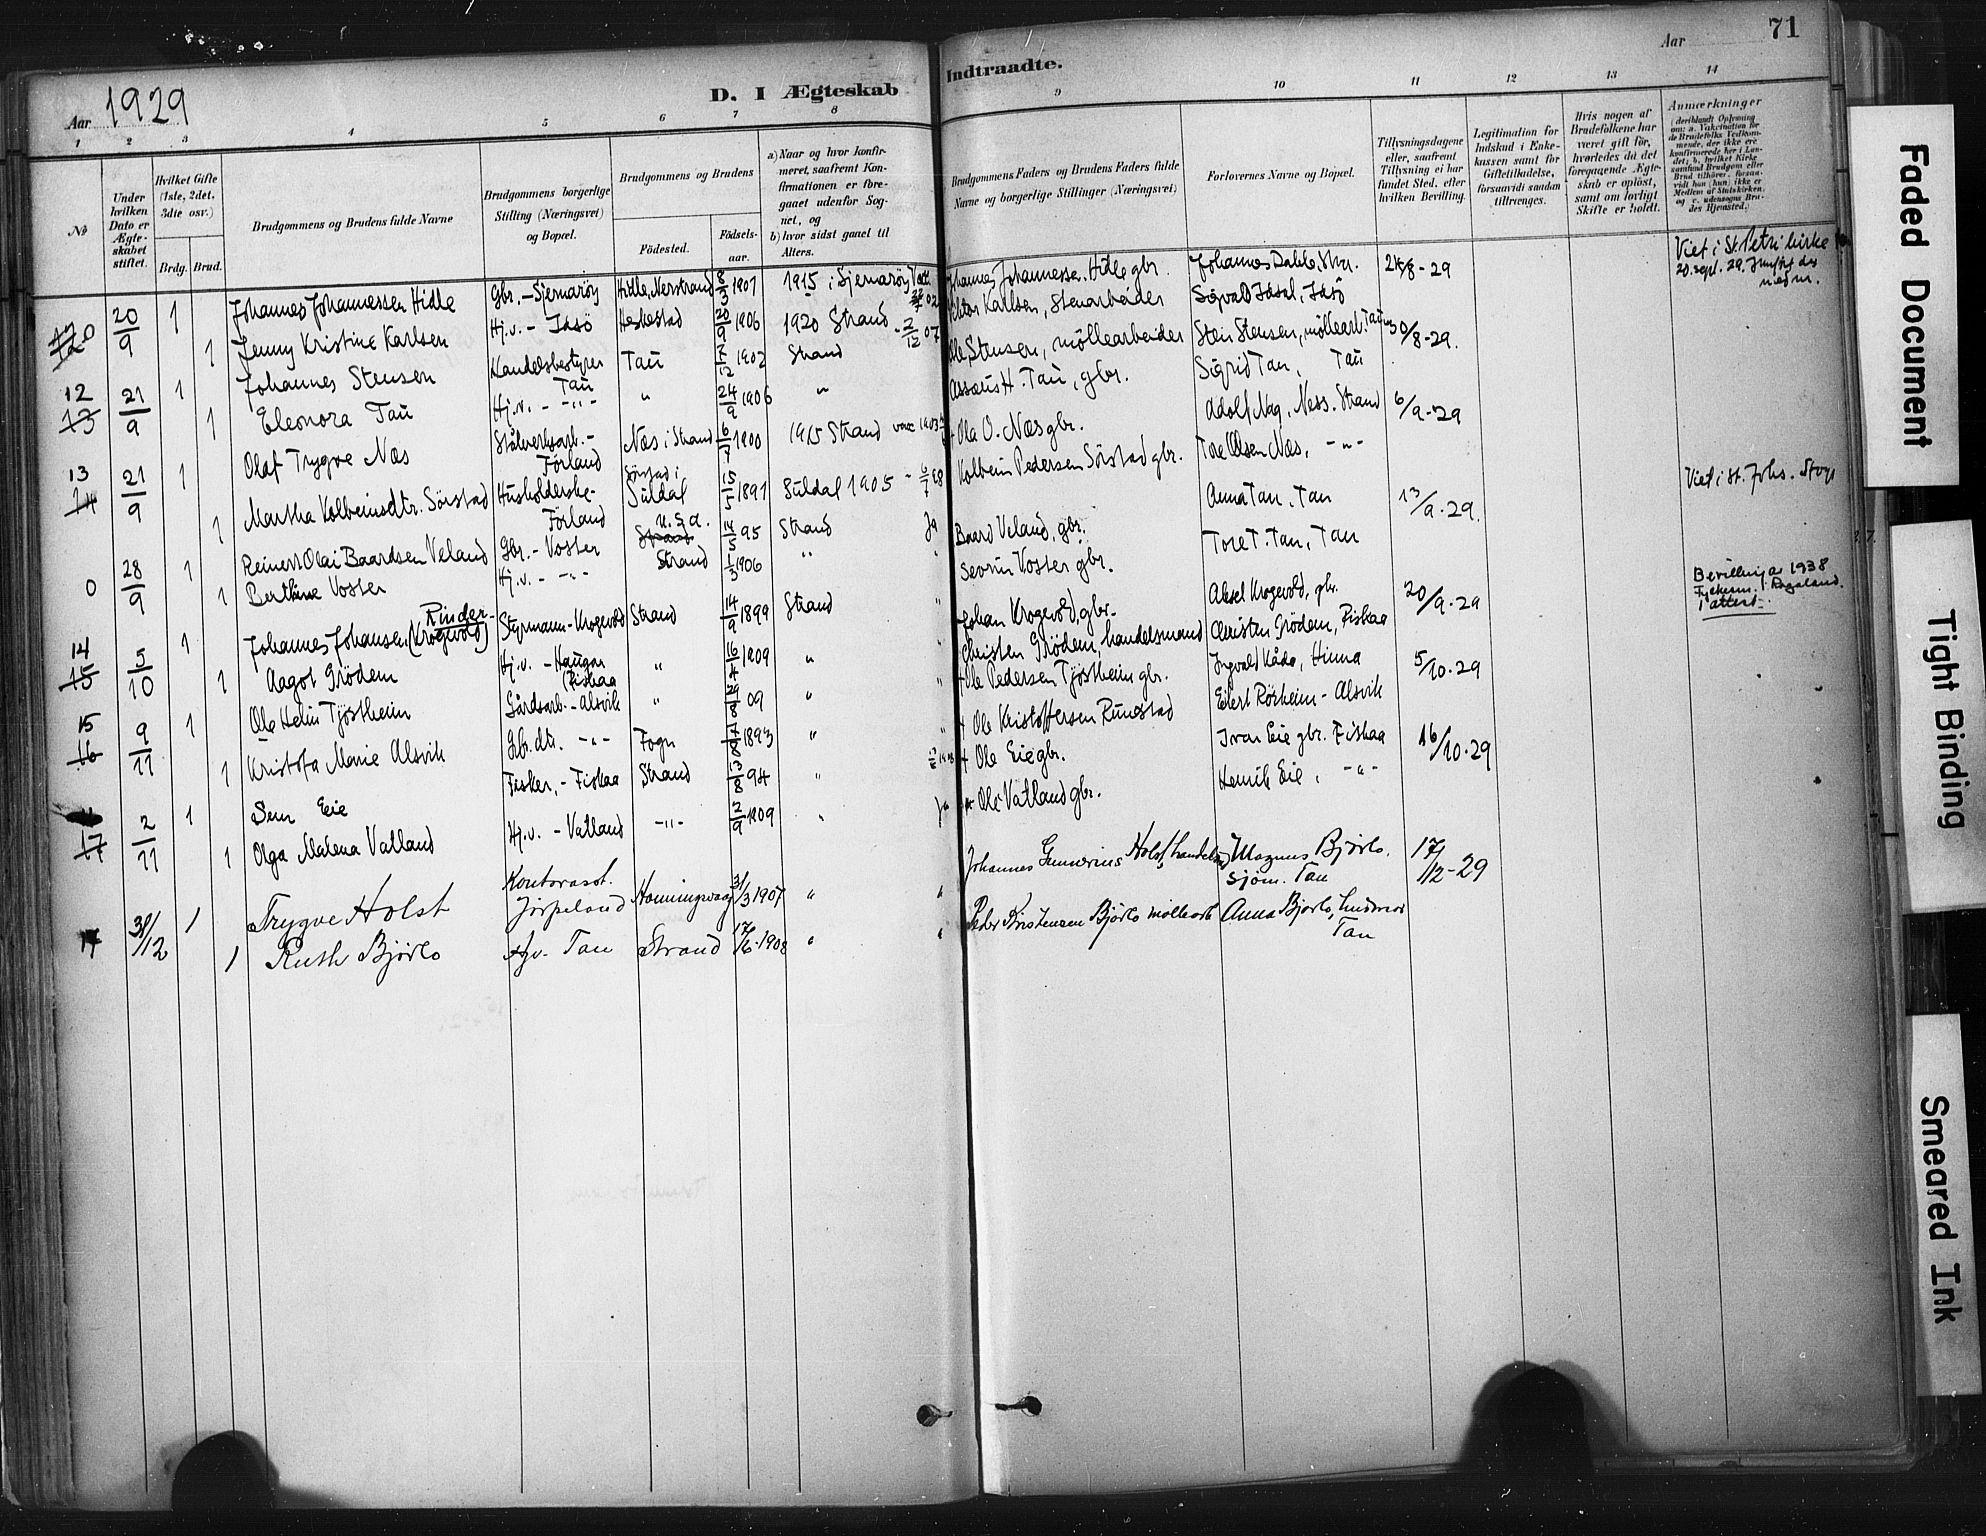 Aar 1929
D. I Ægteskab
Indtraadte.
Aar
71
1 2 3 4 5 6 7 8 9 10 11 12 13 14
No
Under hvilken Dato er Ægteskabet stiftet.
Hvilket Gifte (1ste, 2det, 3die osv.)
Brdg. Brud.
Brudgommens og Brudens fulde Navne
Brudgommens borgerlige Stilling (Næringsvei) og Bopæl.
Brudgommens og Brudens
Födested.
Födsels-aar.
a) Naar og hvor konfirmeret, saafremt Konfirmationen er foregaaet udenfor Sognet, og
b) hvor sidst gaaet til Alters.
Brudgommens Faders og Brudens Faders fulde Navne og borgerlige Stillinger (Næringsvei)
Forlovernes Navne og Bopæl.
Tillysningsdagene eller, saafremt Tillysning ei har fundet Sted, efter hvilken Bevilling.
Legitimation for Indskud i Enkekassen samt for Giftetilladelse, forsaavidt saadan tiltrænges.
Hvis nogen af Brudefolkene har været gift før, hvorledes da det foregaaende Ægteskab er oplöst, samt om lovligt Skifte er holdt.
Anmærkninger
20/9 1 Johannes Johannessen Hidle Gbr. - Sjernaröy Hidle, Nerstrand 8/3 1901 1915 i Sjernaröy Johannes Johannesse. Hidle gbr. Johannes Dahle, Str. 8-29 Viet i St. Petri kirke
20. sept. 29.
1 Jenny Kristine Karlsen Hj.v. - Idsö Heskestad 20/9 1906 1920 Strand - 2/12 07 Karlsen, stenarbeider Sigvald Idsal, Idsö
12 13 21/9 1 Johannes Stensen Handelsbestyrer Tau Tau 7/12 1902 Strand Ole Stensen, möllearbeider Sten Stensen, möllearb. Tau 30/8-29.
1 Eleonora Tau Hj.v. - -"- " 24/9 1906 " H. Tau, gbr. Sigrid Tau, Tau
13 14 21/9 1 Olaf Trygve Næs Stålverksarb. - Förland Næs i Strand 1900 1915 Strand Ola O. Næs gbr. Adolf Nag, Ness. Strand 6/9-29
1 Martha Kolbeinsdtr. Sörstad Husholderske - Förland Sörstad i Suldal 15/5 1891 Suldal 1905 Kolbein Pedersen Sörstad gbr. Tore Olsen Næs, -"- Viet i St. Johs. Stvgr
0 28/9 1 Reinert Olai Baardsen Veland Gbr. - Voster Strand U.S.A. 14/5 95 Strand Ja Baard Veland, gbr. Anna Tau, Tau 13/9.29.
1 Berthine Voster Hj.v. - -"- Strand 1/3 1906 " Sevrin Voster gbr. Tore T. Tau, Tau
14 15 5/10 1 Johannes Johansen (Krogevold) Rinder- Styrmann - Krogevold Strand 14/9 1899 Strand " Johan Krogevold, gbr. Aksel Krogevold, gbr. 20/9-29 Bevillning av 1938
Fylkesm. i Rogaland.
1 attest.
1 Aagot Grödem Hj.v. - Haugan Fiskaa " 16/4 1909 " Christen Grödem, handelsmand Christen Grödem, Fiskaa
15 16 9/11 1 Ole Helin Tjöstheim Gårdsarb. - Alsvik " 29/8 09 " + Ole Pedersen Tjöstheim gbr. Ingvald Kåda, Hinna 5/10-29
1 Kristofa Marie Alsvik Gbr.dtr. -"- Fogn 1893 " + Ole Kristoffersen Rumstad Eilert Rörheim - Alsvik
17 2/11 1 Sem Eie Fisker, - Fiskaa Strand 13/8 94 " + Ole Eie gbr. Ivar Eie gbr. Fiskaa 16/10.29
1 Olga Malena Vatland Hj.v. - Vatland -"- 2/9 1909 " Ja + Ole Vatland gbr. Henrik Eie, -"-
17 31/12 1 Trygve Holst Kontorasst. Jörpeland Honningsvaag 31/3 1907 " " Johannes Gunnerius Holst, Magnus Björlo, sjöm. Tau 17/12-29
1 Ruth Björlo Hjv. Tau Strand 17/6-1908 " " Peder Kristensen Björlo möllearb Anna Björlo, Tau
Faded Document
Tight Binding
Smeared Ink